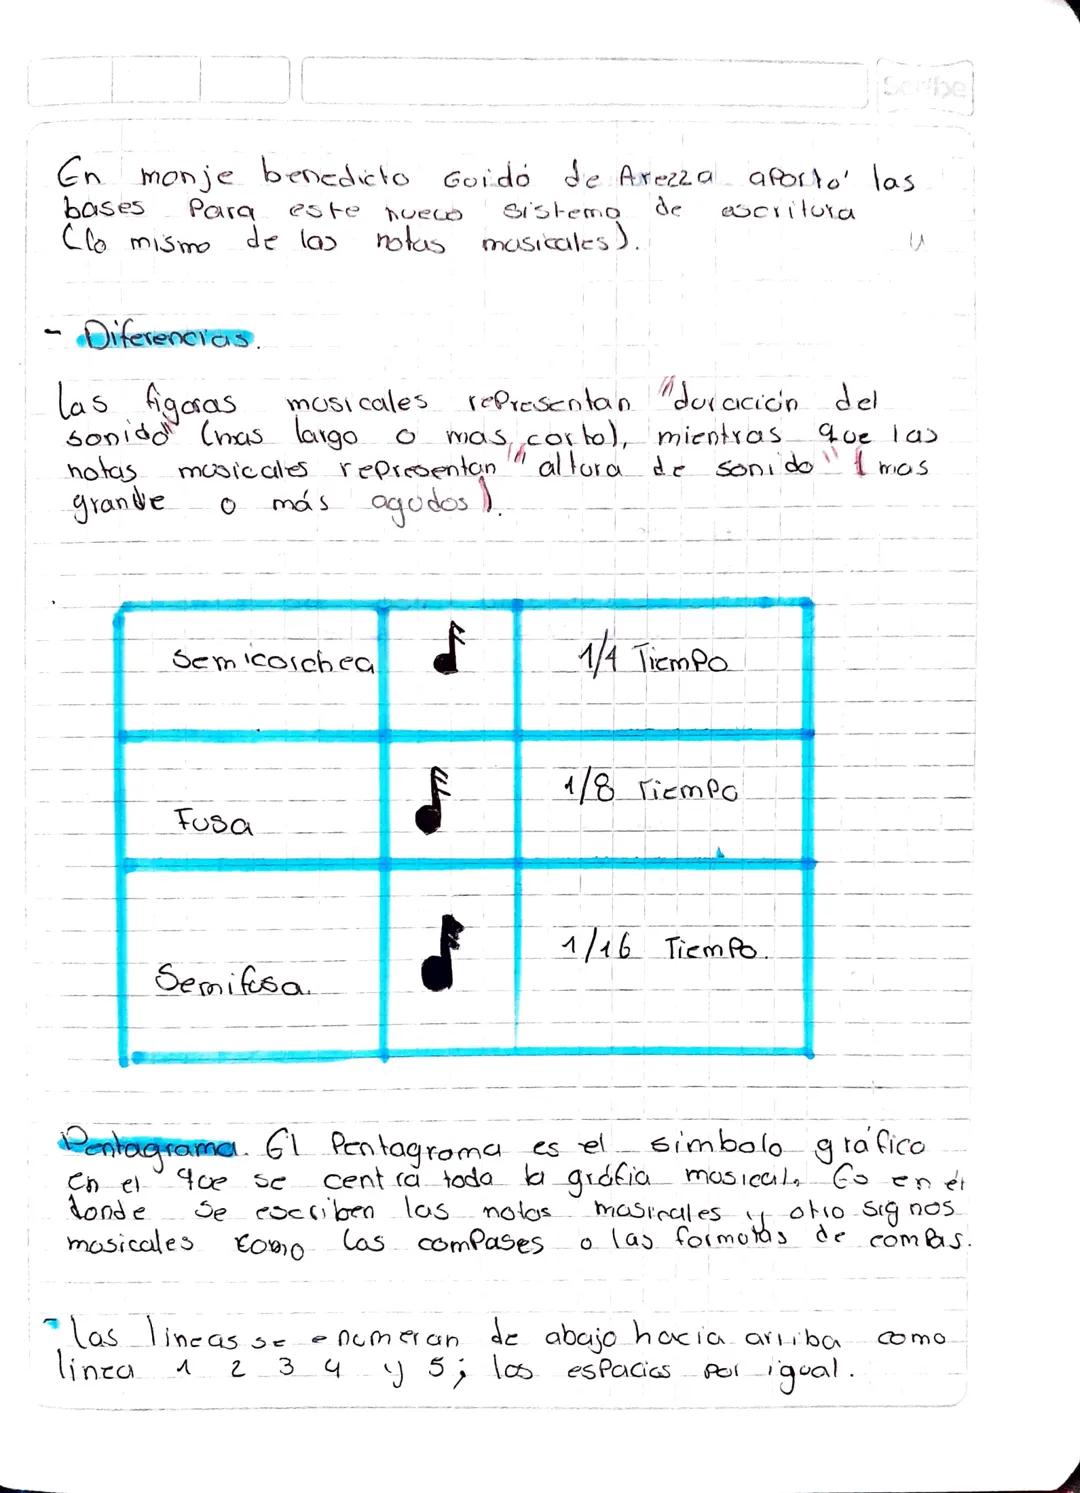 Scribe
En monje benedicto Guidó de Arezza aporto' las
bases Para este nuevo sistema de escritura
(lo mismo de las notas musicales).
- Diferencias.
las figuras musicales representan "duración del
sonido" (mas largo o mas corto), mientras que las
notas musicales representan "altura de sonido" (mas
grande o más agudos).
Semicorchea 1/4 Tiempo
Fusa 1/8 Tiempo
Semifusa. 1/16 Tiempo.
Pentagrama. El Pentagrama es el simbolo gráfico
en el que se centra toda la gráfia musical, Es en él
donde se escriben las notas musicales y otro signos
musicales como las compases o las formulas de compas.
- las lineas se enumeran de abajo hacia arriba como
linea 1 2 3 4 y 5; los espacios por igual.